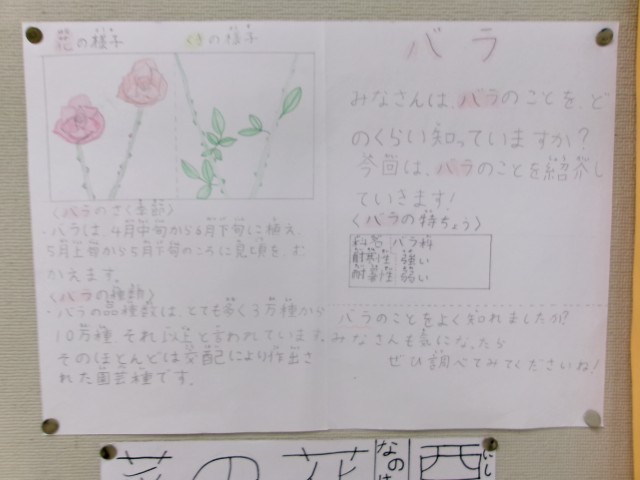 バラ
みなさんは、バラのことを、ど
のくらい知っていますか?
今回は、バラのことを紹介し
ていきます!
〈バラの特ちょう〉
科名 バラ科
耐寒性 強い
耐暑性 弱い
花の様子
くきの様子
〈バラのさく季節〉
・バラは、4月中旬から6月下旬に植え、
5月上旬から5月下旬のころに見頃を、む
かえます。
〈バラの種類〉
・バラの品種数は、とても多く3万種から
10万種 それ以上と言われています。
そのほとんどは交配により作出さ
れた園芸種です。
バラのことをよく知れましたか?
みなさんも気になったら
ぜひ調べてみてくださいね!
菜の花
なのは
西
にし